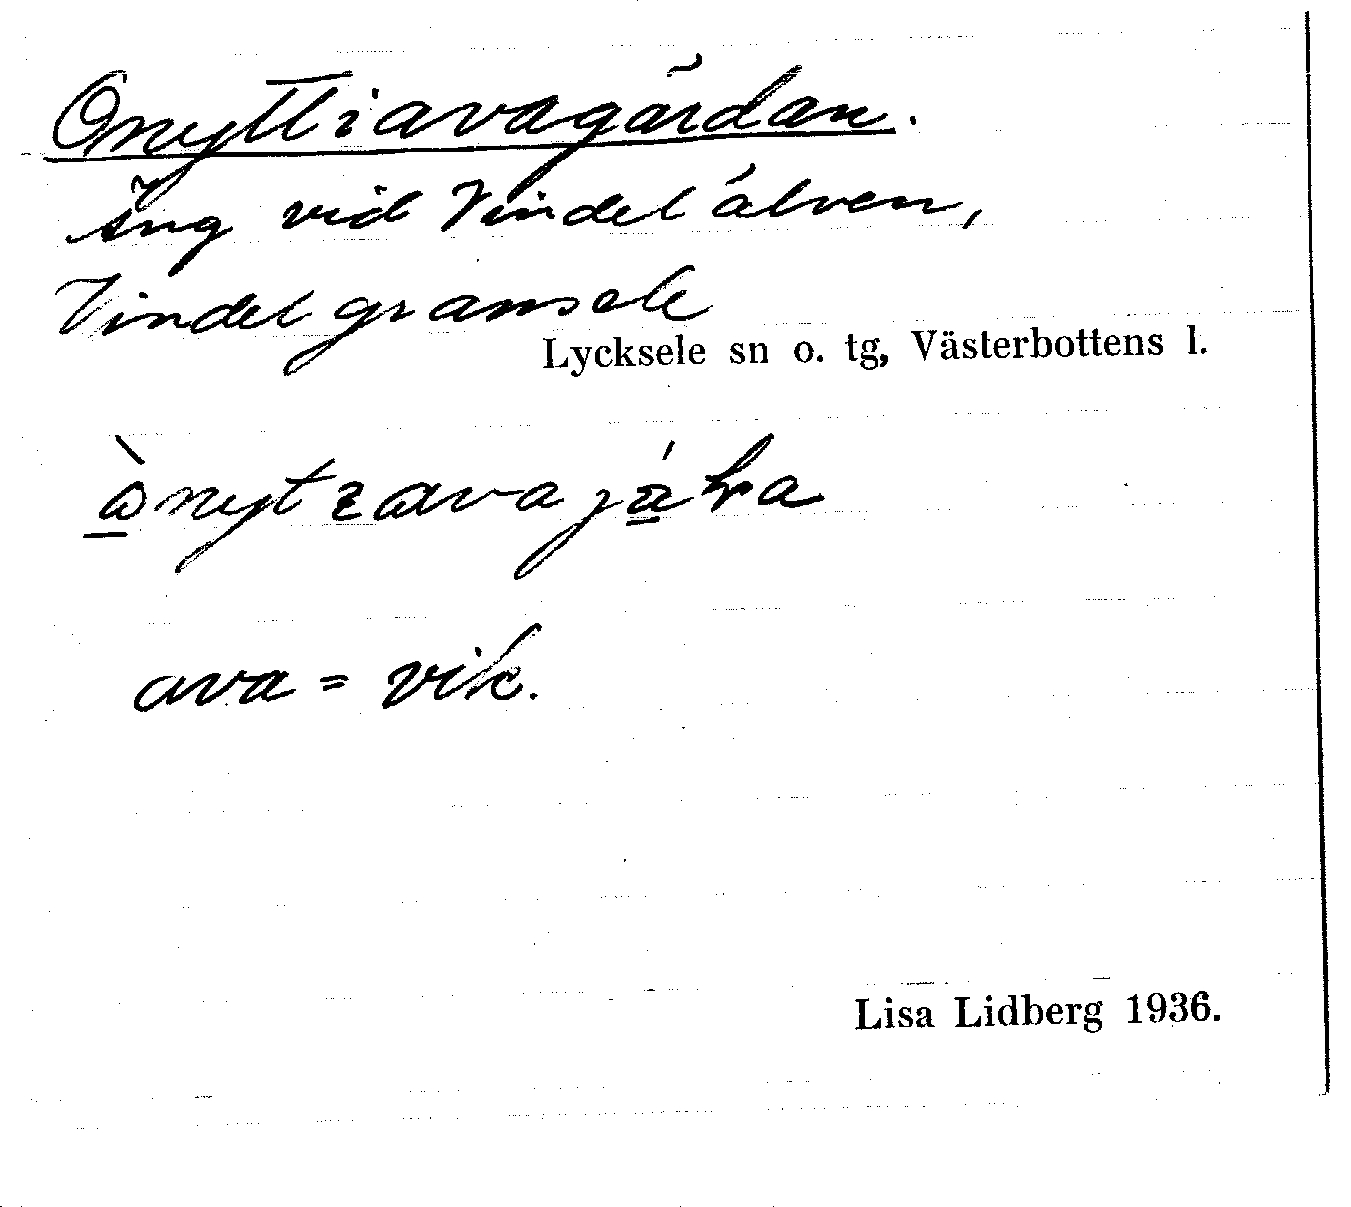 Onyttiavagärdan.
Äng vid Vindelälven,
Vindelgransele
Lycksele sn o. tg, Västerbottens l.
ava = vik.
Lisa Lidberg 1936.